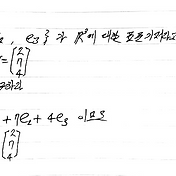 , e₃ } 가 ℝ³에 대한 표준기저라고
= [2 7 4]
구하라
+ 7e₂ + 4e₃ 이므로
[2 7 4]